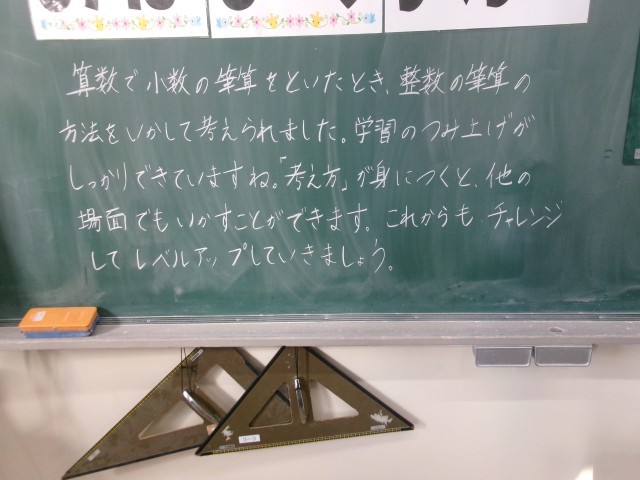 算数で小数の筆算をといたとき、整数の筆算の
方法をいかして考えられました。学習のつみ上げが
しっかりできていますね。「考え方」が身につくと、他の
場面でもいかすことができます。これからも チャレンジ
してレベルアップしていきましょう。